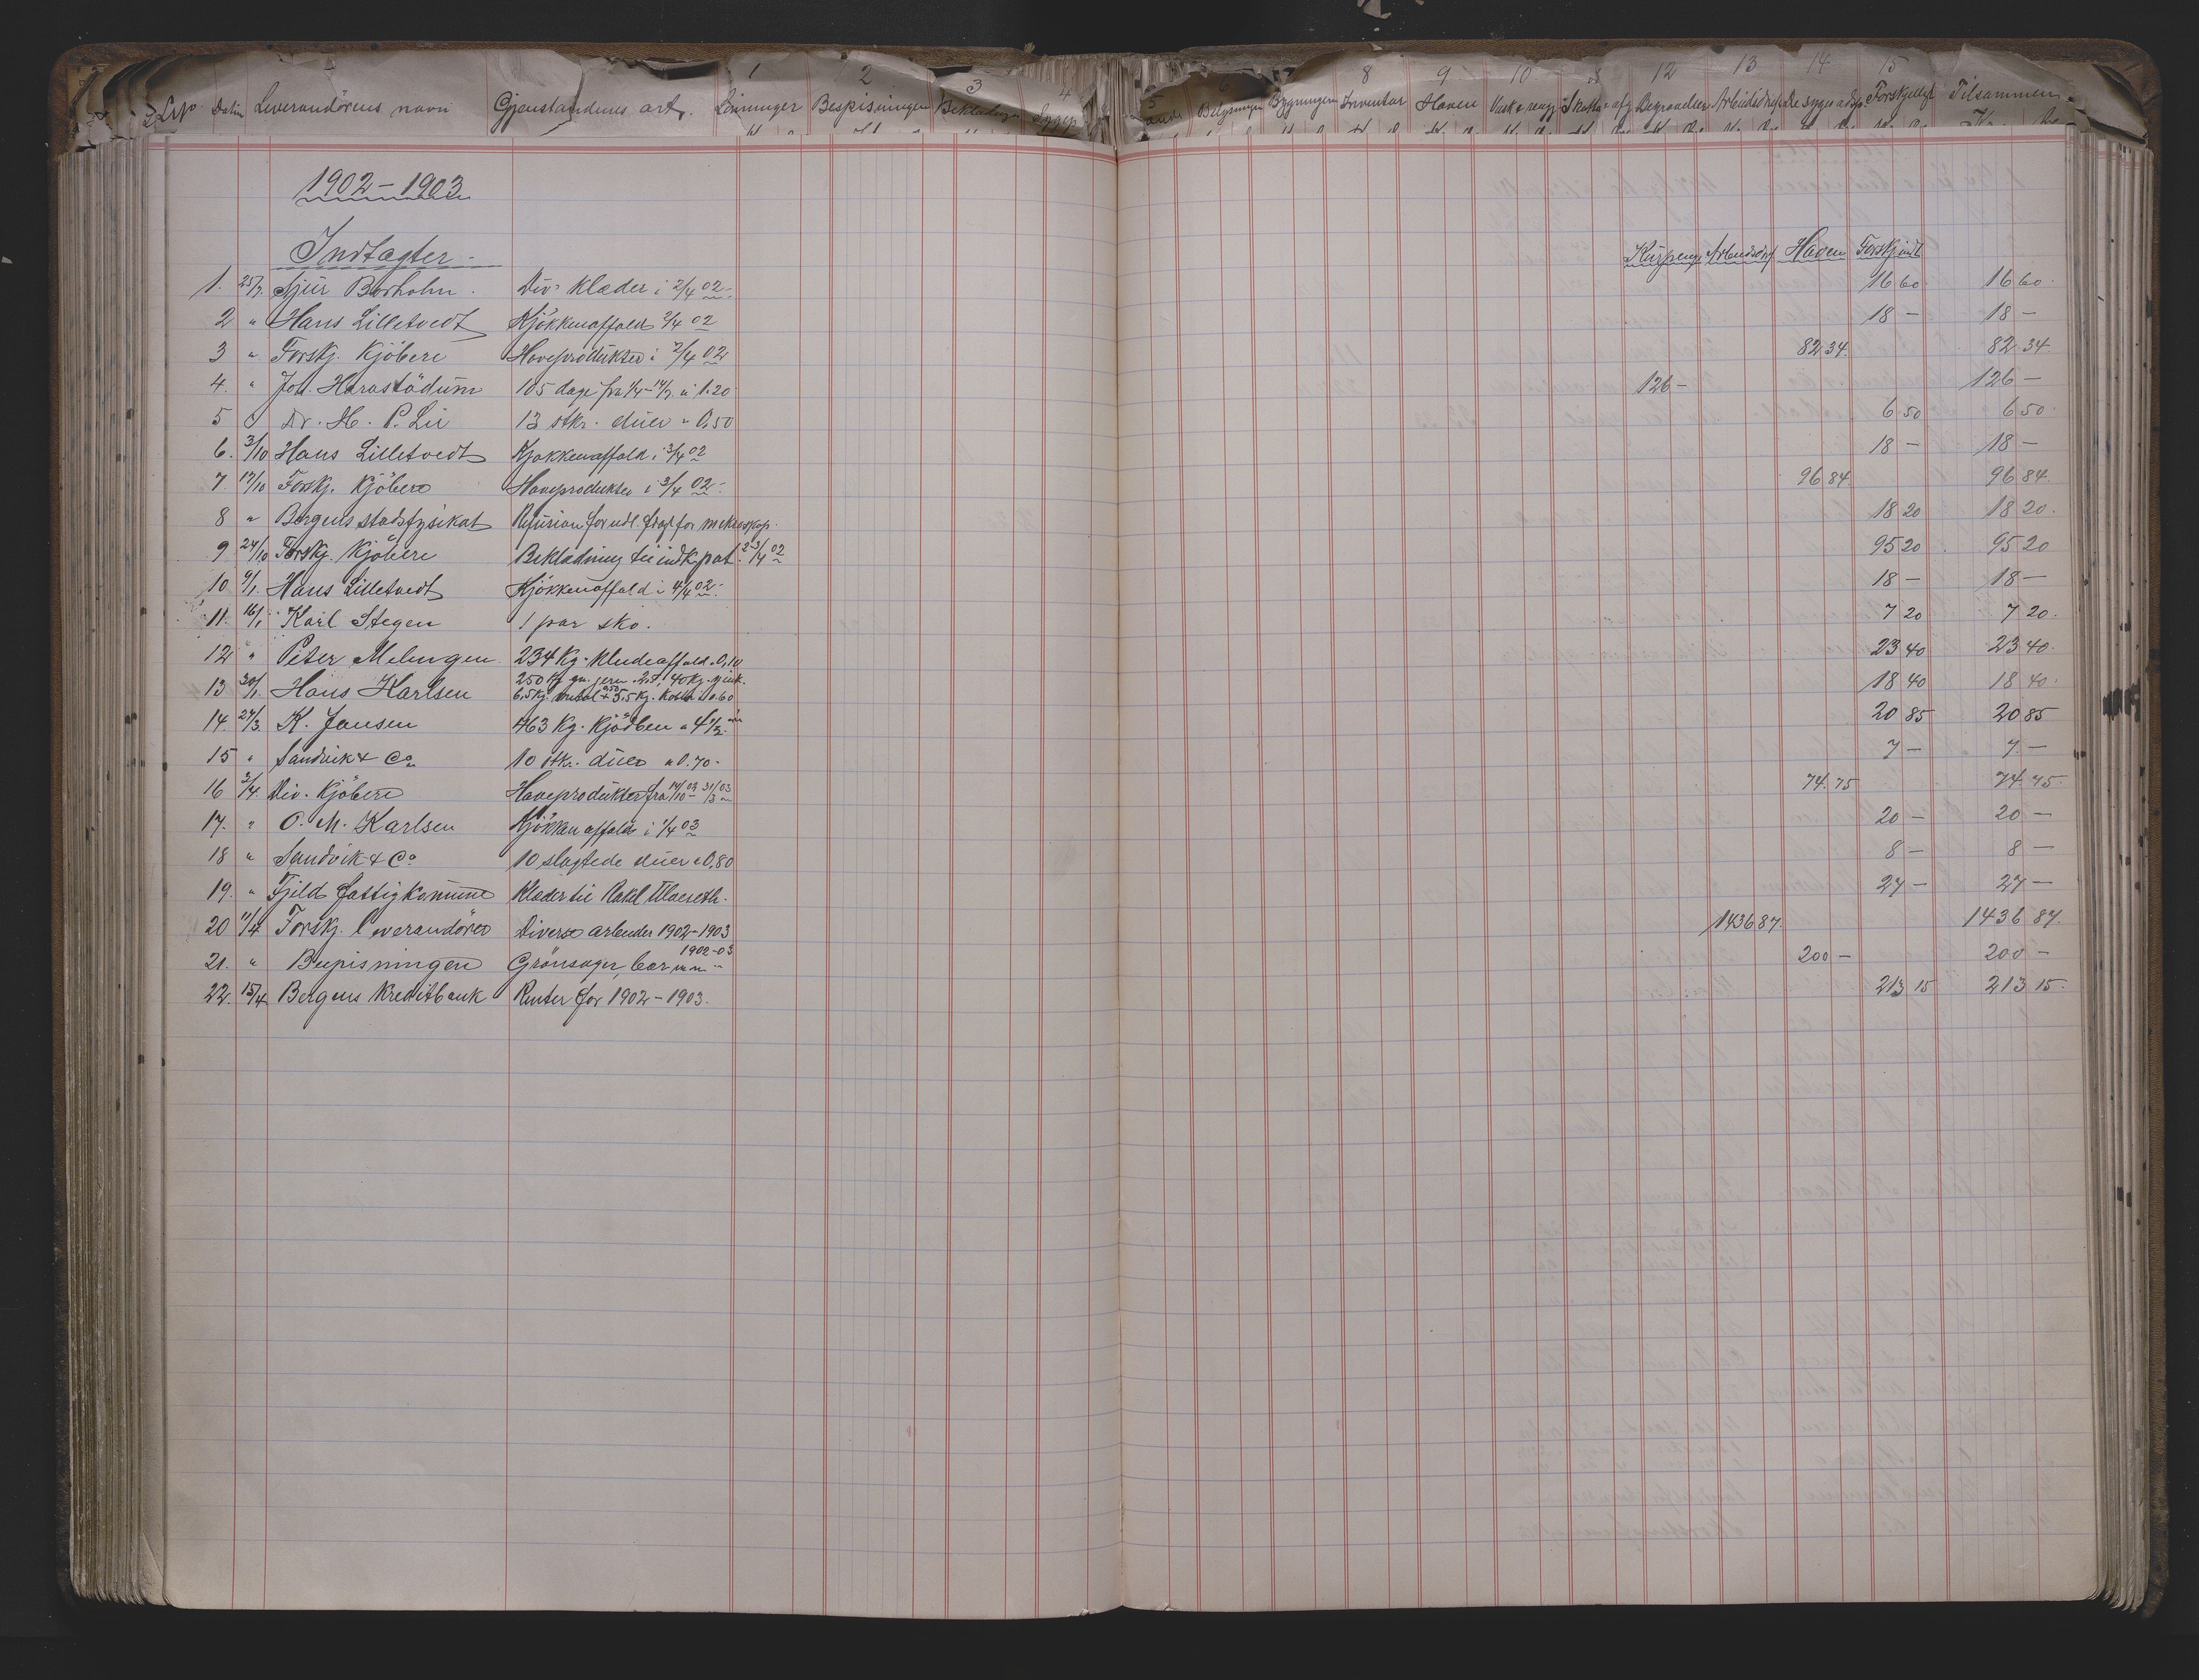 1 2 3 4 5 6 8 9 10 12 13 14 15
Datum Leverandörens navn Gjenstandens art. Lönninger Bespisningen Beklædning Belysningen Bygninger Inventar Haven Begravelser Forskjelligt Tilsammen
1902-1903
Indtægter.
Kurpenge Arbeidsdrif Haven Forskjelligt
1. 25/7. Sjur Borholm. Div. klæder i 2/4 02. 16 60 16 60.
2 " Hans Lilletvedt Kjökkenaffald 2/4 02 18 – 18 –
3 " Forskj. Kjöbere Haveprodukter i 2/4 02 82 34. 82 34.
4. " Joh. Harastödum 105 dage fra 1/4 – 14/7. a 1.20 126 – 126 –
5 " Dr. H. P. Lie 13 stkr. duer a 0,50 6 50 6 50.
6. 3/10 Hans Lilletvedt Kjøkkenaffald i 3/4 02 18 – 18 –
7 17/10 Forskj. Kjöbere Haveprodukter i 3/4 02. 96 84. 96 84.
8 " Bergens stadsfysikat Refusion for udl. fragt for mikroskop. 18 20 18 20.
9 24/10 Forskj. Kjöbere Beklædning til indk. pat. 2-3/4 02 95 20 95 20
10 9/1. Hans Lilletvedt Kjökkenaffald i 4/4 02. 18 – 18 –
11. 16/1 Karl Stegen 1 par sko. 7 20 7 20.
12 " Peter Melingen 234 Kg. kludeaffald a 0,10 23 40 23 40.
13 30/1. Hans Karlsen 250 Kg gm. jern 40 Kg. zink.
6,5 Kg. 5.5 Kg. kobber a 0.60 18 40 18 40.
14. 27/3. K. Jansen 463 Kg. Kjödben a 4 1/2 20 85 20 85
15 " Sandvik & Co 10 stk. duer a 0.70. 7 – 7. –
16 3/4. Div. Kjöbere Haveprodukter fra 14/10 02 31/3 03 74. 75 74. 75.
17. " O. M. Karlsen Kjökkenaffald i 1/4 03 20 – 20 –
18 " Sandvik & Co 10 slagtede duer a 0,80 8 – 8 –
19. " Fjeld fattigkommune Klæder til Rakel 27 – 27 –
20 11/4 Forskj. leverandörer Diverse arbeider 1902-1903 1436 87. 1436 87.
21. " Bespisningen Grönsager, bær m m 1902-03 200 – 200 –
22. 15/4. Bergens Kreditbank Renter for 1902-1903. 213 15 213 15.